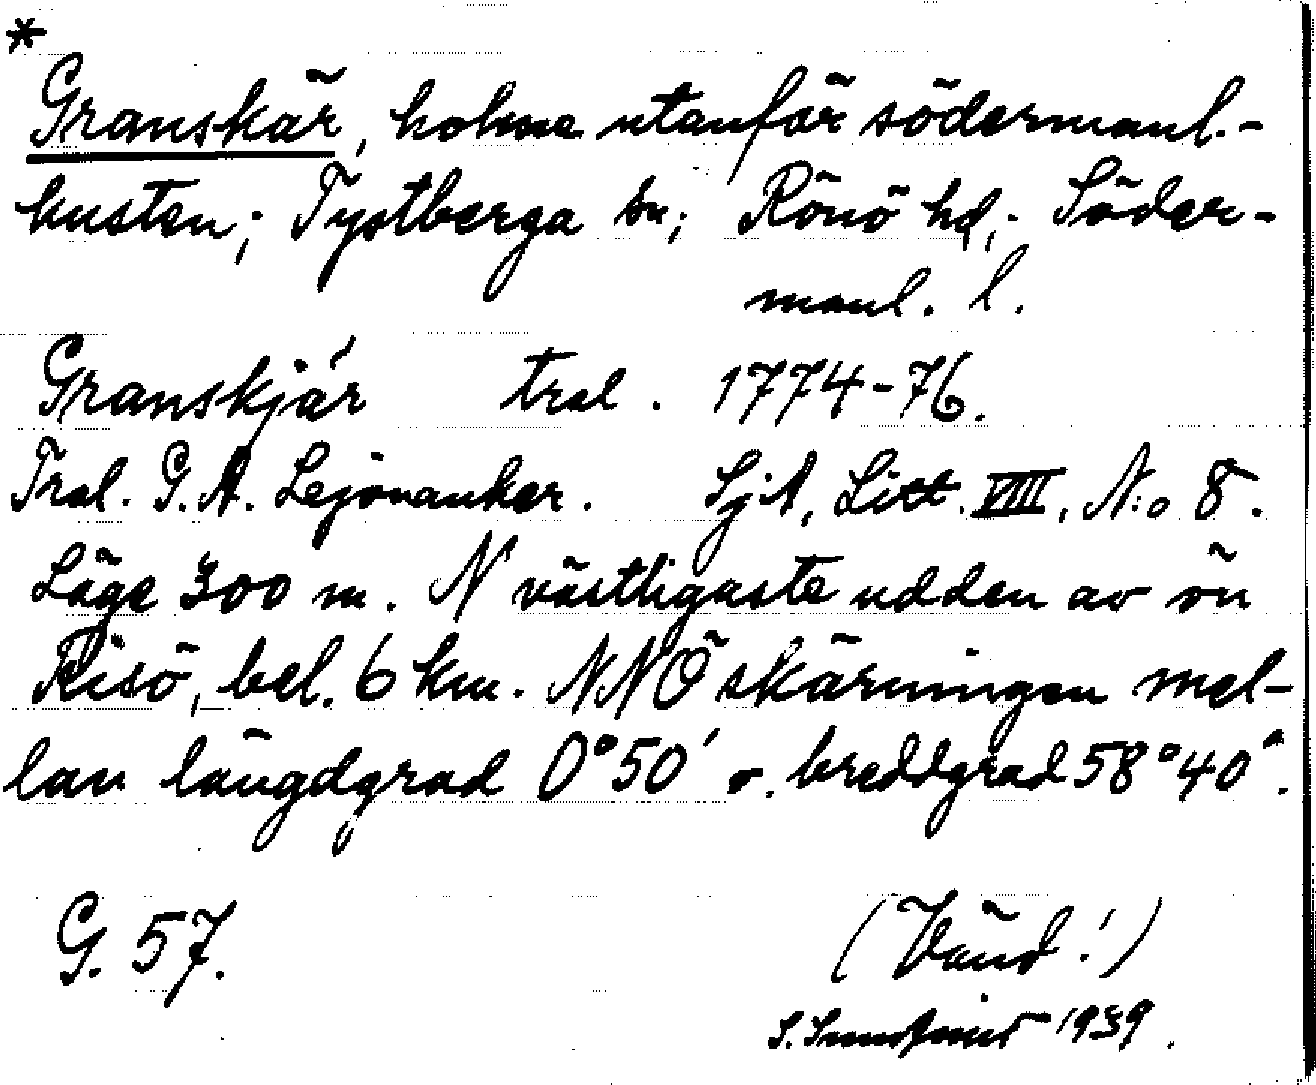 *
Granskär, holme utanför södermanl.-
kusten; Tystberga sn; Rönö hd; Söder-
manl. l.
Granskjär tral. 1774-76.
Tral. G. A. Lejonanker. SjA, Litt. VIII, N:o 8.
Läge 300 m. N västligaste udden av ön
Risö, bel. 6 km. NNÖ skärningen mel-
lan längdgrad 0°50' o. breddgrad 58°40'.
G. 57.
(Vänd!)
S. 1939.